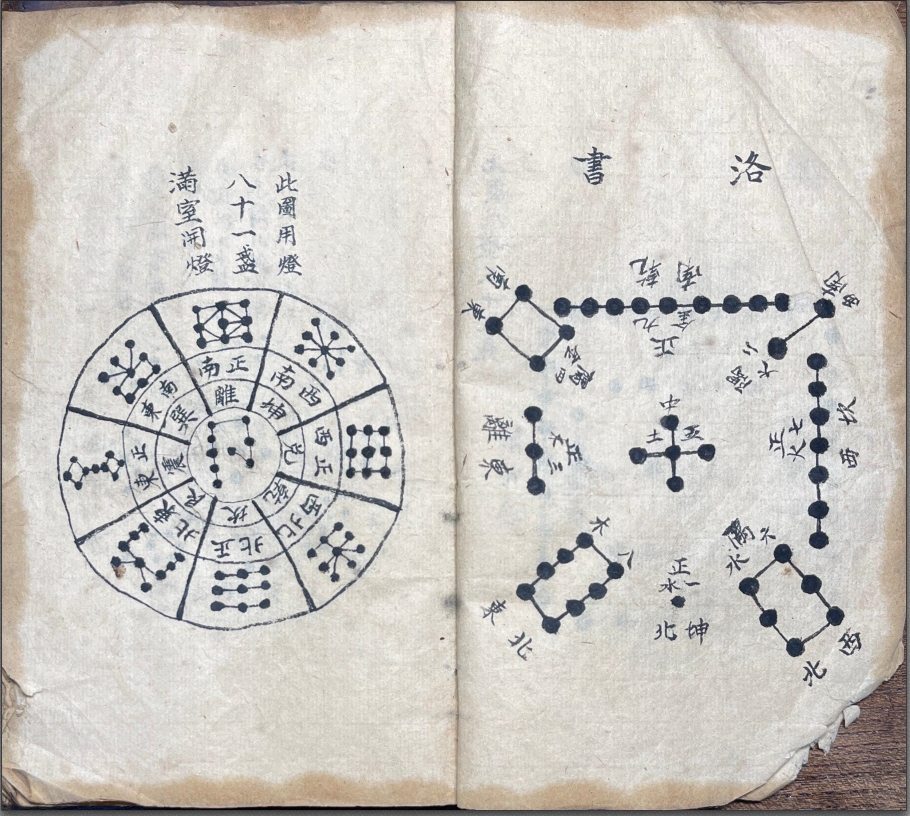 洛書
南乾
正九金
南西
二火
南東
四
中
五土
坎西
正七火
離東
正三木
八木
東北
正一水
坤北
六水
西北
此圖用燈
八十一盞
滿室開燈
正南
離
西南
坤
正西
兌
西北
乾
正北
坎
東北
艮
正東
震
東南
巽